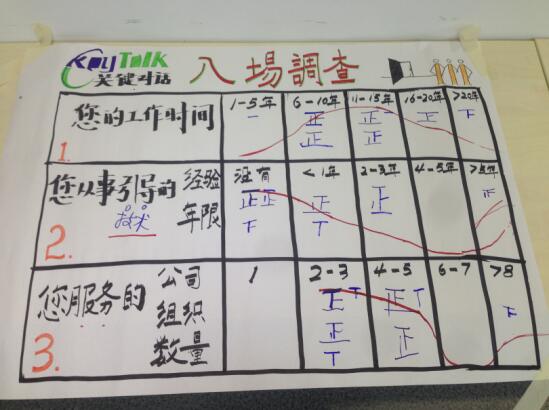 KeyTalk
关键对话
入場調查
1. 您的工作时间
1-5年 6-10年 11-15年 16-20年 >20年
一 正 下
正
2. 您从事引导的技术 经验年限
没有 <1年 2-3年 4-5年 >5年
正正 正 正 正
下 T
3. 您服务的 公司组织数量
1 2-3 4-5 6-7 >8
正T 正T 下
正 正
T